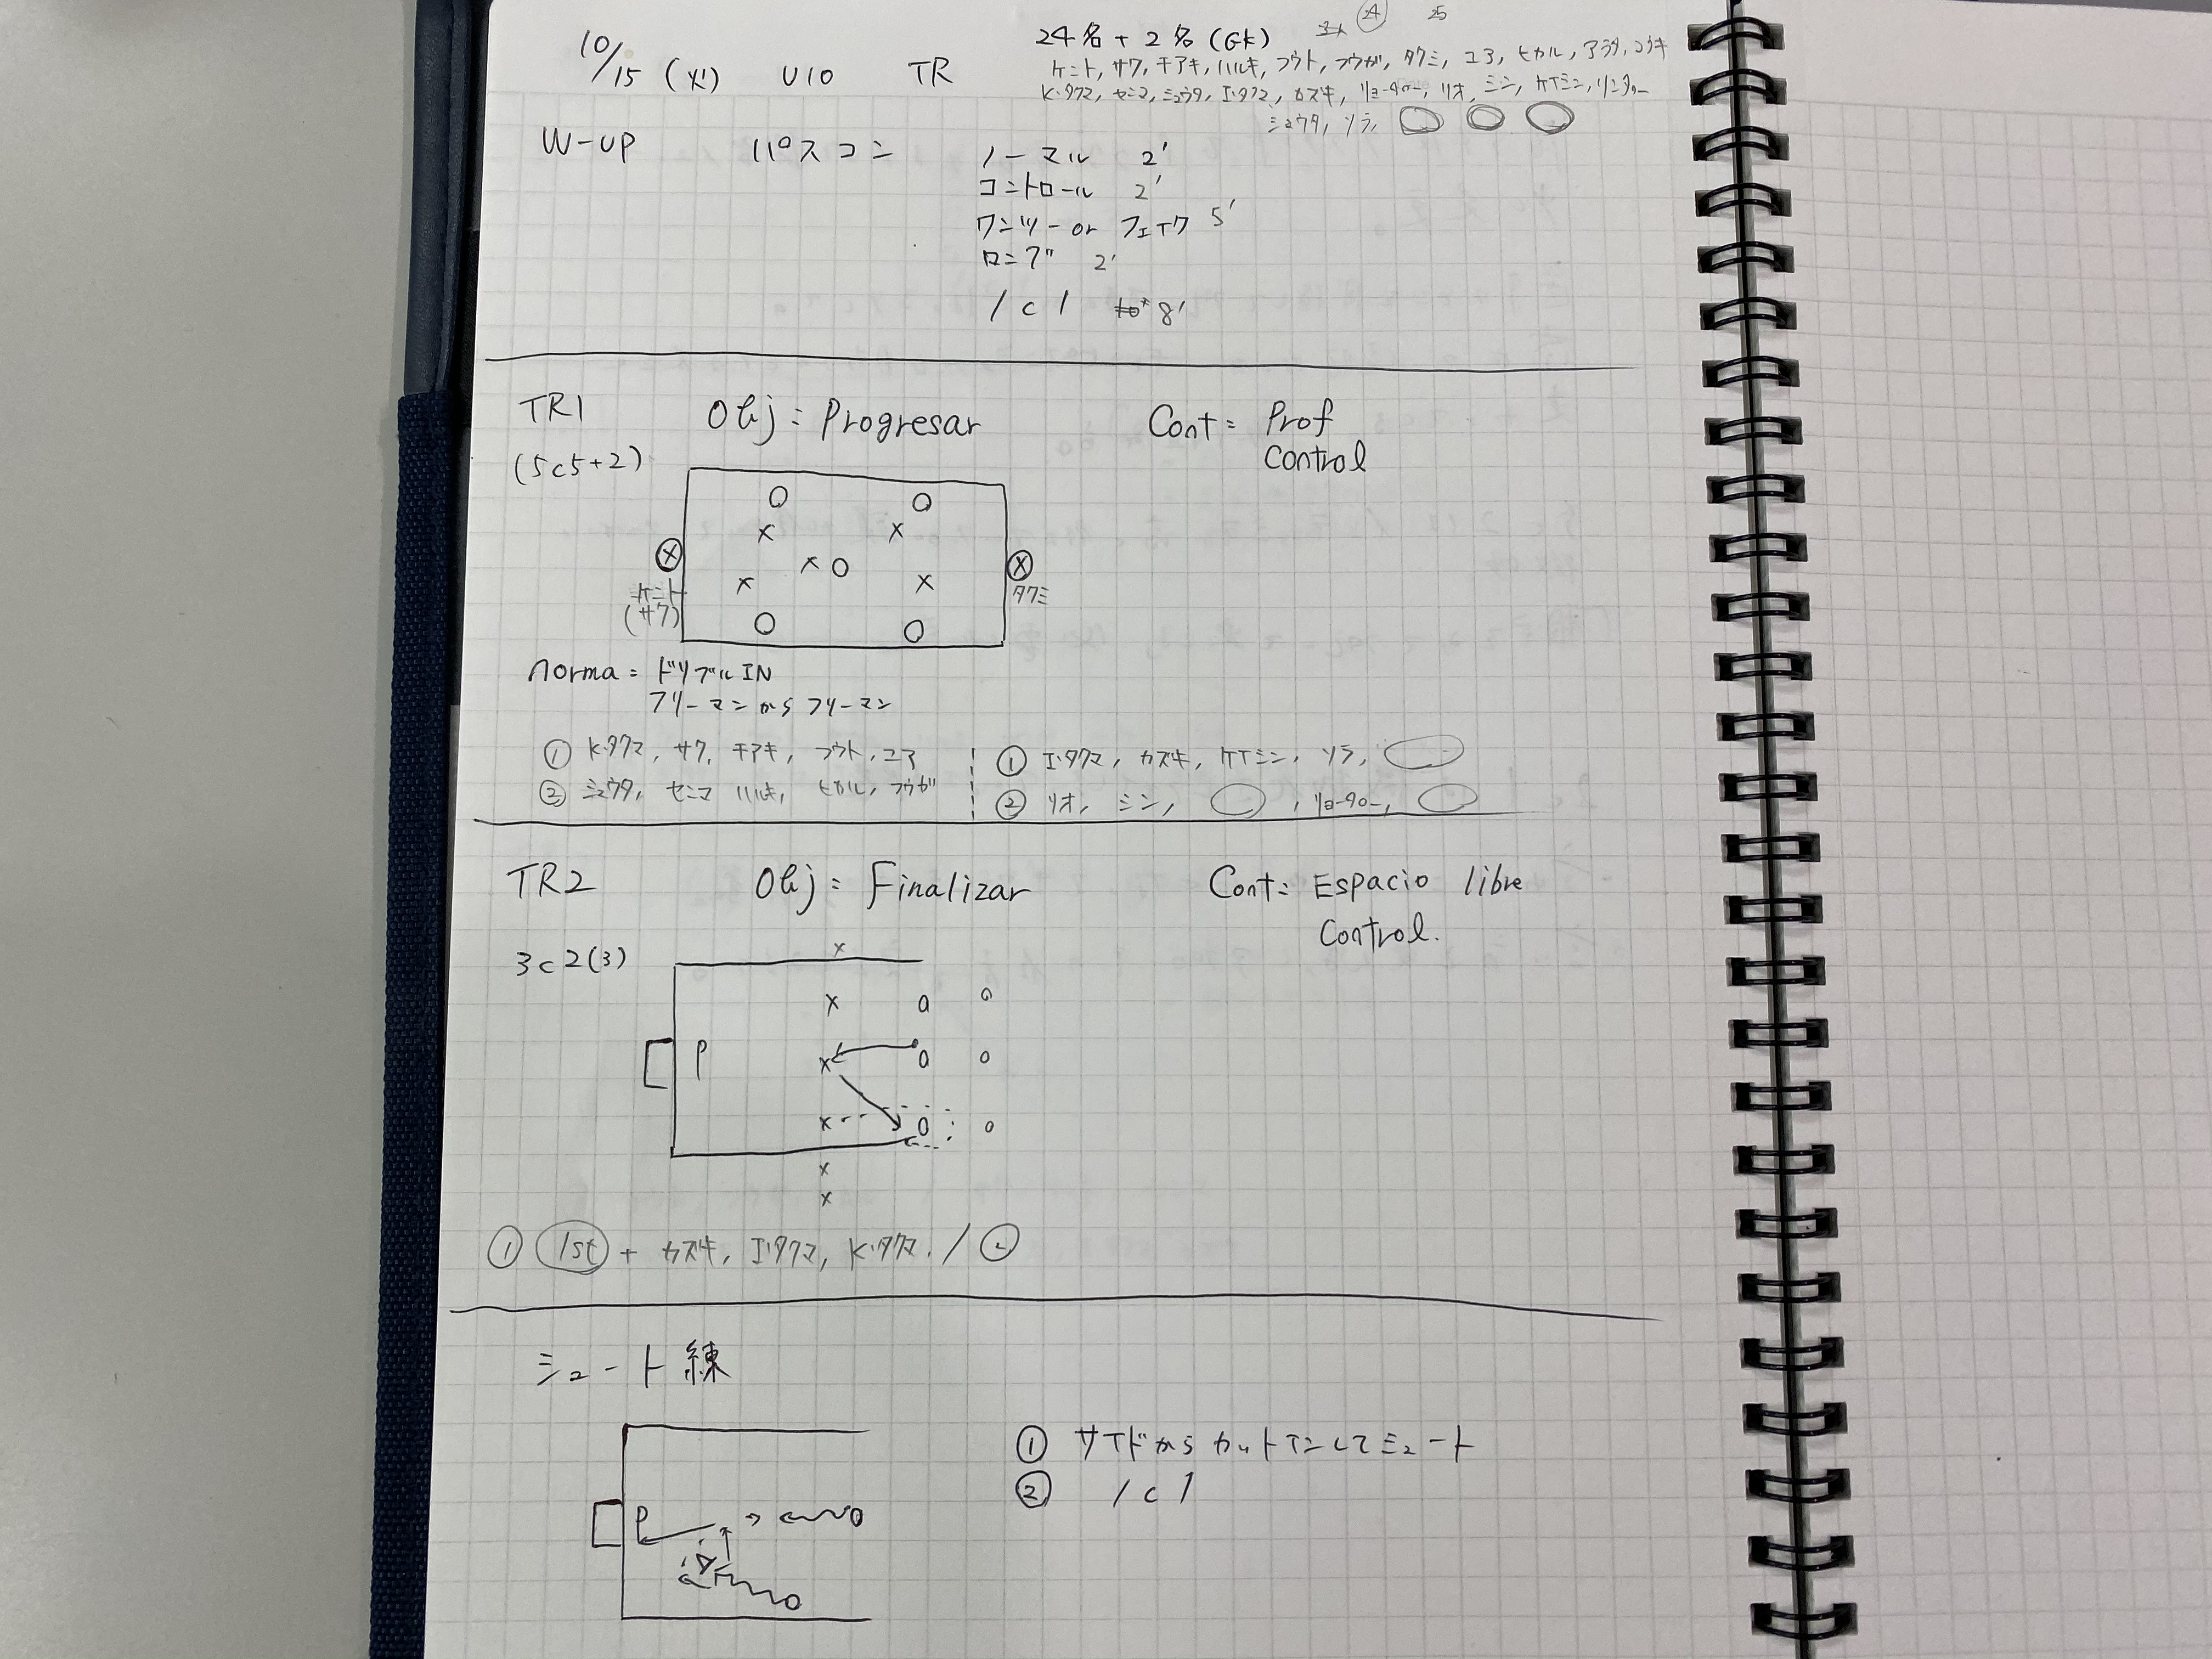 10/15 (火) U10 TR
24名 + 2名 (GK) 24 25
ケント, サワ, チアキ, ハルキ, フウト, フウガ, タクミ, ユア, ヒカル, アラタ, コウキ
K.タクマ, センマ, シュウタ, I.タクマ, カズキ, リョータロー, リオ, ミン, ケイミン, リンタロー
シュウタ, ソラ,
W-UP パスコン ノーマル 2'
コントロール 2'
ワンツー or フェイク 5'
ロング 2'
1c1 8'
TR1 Obj = Progresar Cont = Prof
Control
(5c5+2)
ケント
(サワ)
タクミ
norma = ドリブルIN
フリーマンからフリーマン
① K.タクマ, サワ, チアキ, フウト, ユア
② シュウタ, センマ, ハルキ, ヒカル, フウガ
① I.タクマ, カズキ, ケイミン, ソラ,
② リオ, ミン, , リョータロー,
TR2 Obj = Finalizar Cont = Espacio libre
Control.
3c2(3)
P
① 1st + カズキ, I.タクマ, K.タクマ. / ②
シュート練
P
① サイドからカットインしてシュート
② 1c1